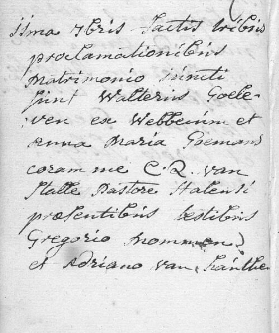 11ma 7bris factis tribus
proclamationibus
matrimonio iuncti
sunt Walterus Goele-
ven ex Webbecum et
anna maria
coram me C. Q. van
Halle pastore Halensi
præsentibus testibus
Gregorio mommen
et Adriano van